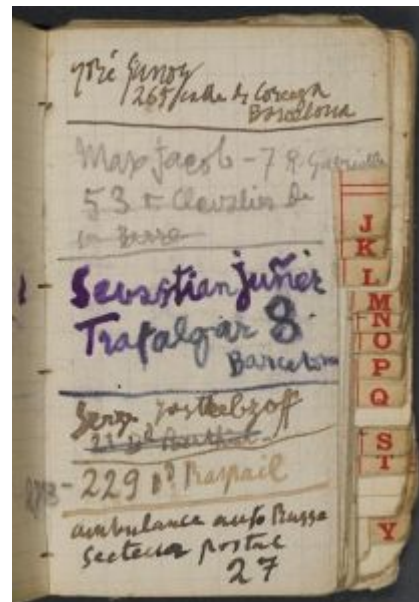 José Junoy
265 calle de Corcega
Barcelona
Max Jacob - 7 R Gabrielle
53 r. Chevalier de
la Barre
Sebastian Juñer
Trafalgar 8
Barcelona
Serge Jastrebzoff
229 Bd Raspail
ambulance auto Russe
secteur postal
27
J
K
L
M
N
O
P
Q
S
T
Y